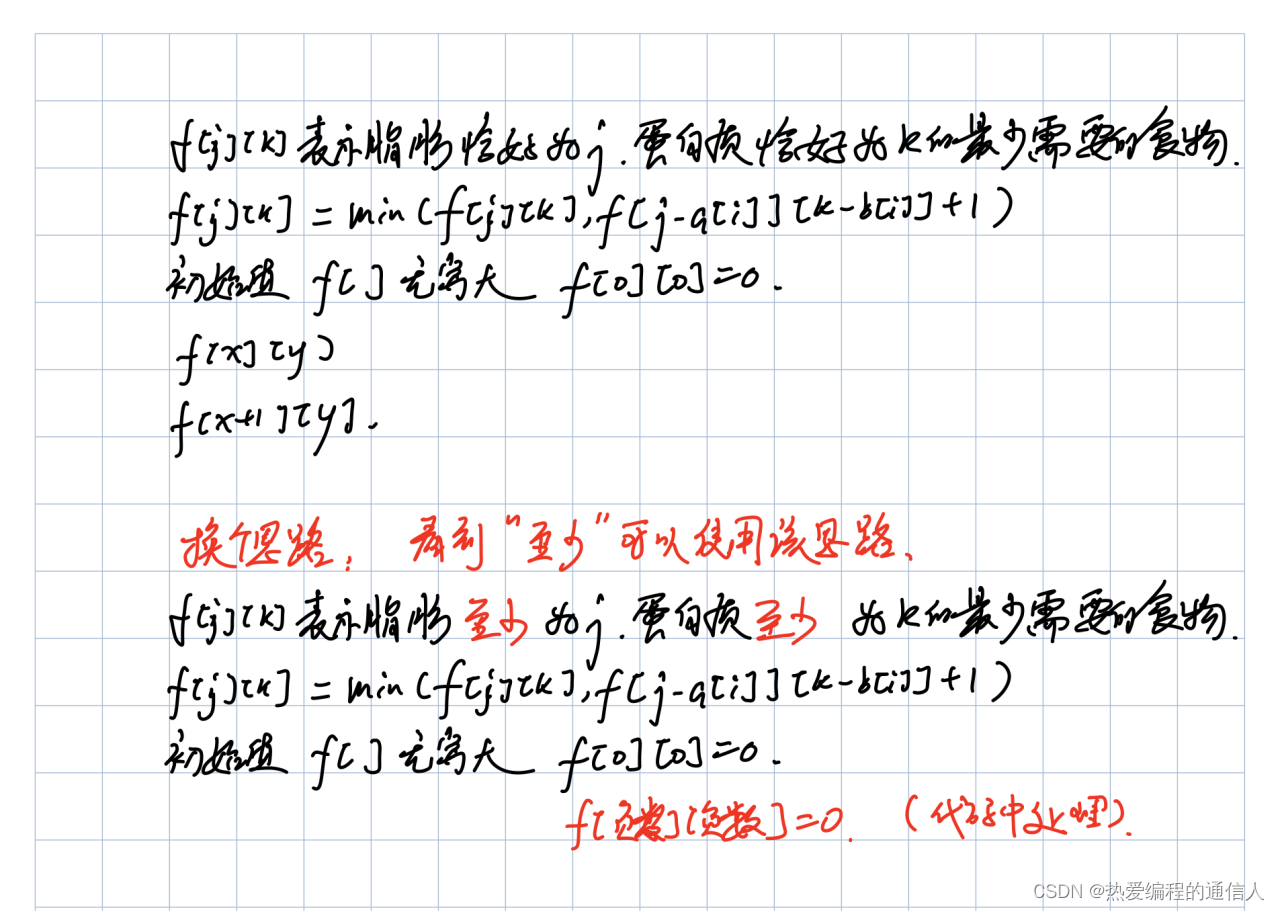 f[j][k]表示脂肪恰好为j.蛋白质恰好为k的最少需要的食物.
f[j][k]=min(f[j][k],f[j-a[i]][k-b[i]]+1)
初始值 f[]无穷大 f[0][0]=0.
f[x][y]
f[x+1][y].
换个思路: 看到“至少”可以使用该思路、
f[j][k]表示脂肪至少为j.蛋白质至少 为k的最少需要的食物.
f[j][k]=min(f[j][k],f[j-a[i]][k-b[i]]+1)
初始值 f[]无穷大 f[0][0]=0.
f[负数][负数]=0. (代码中处理).
CSDN @热爱编程的通信人